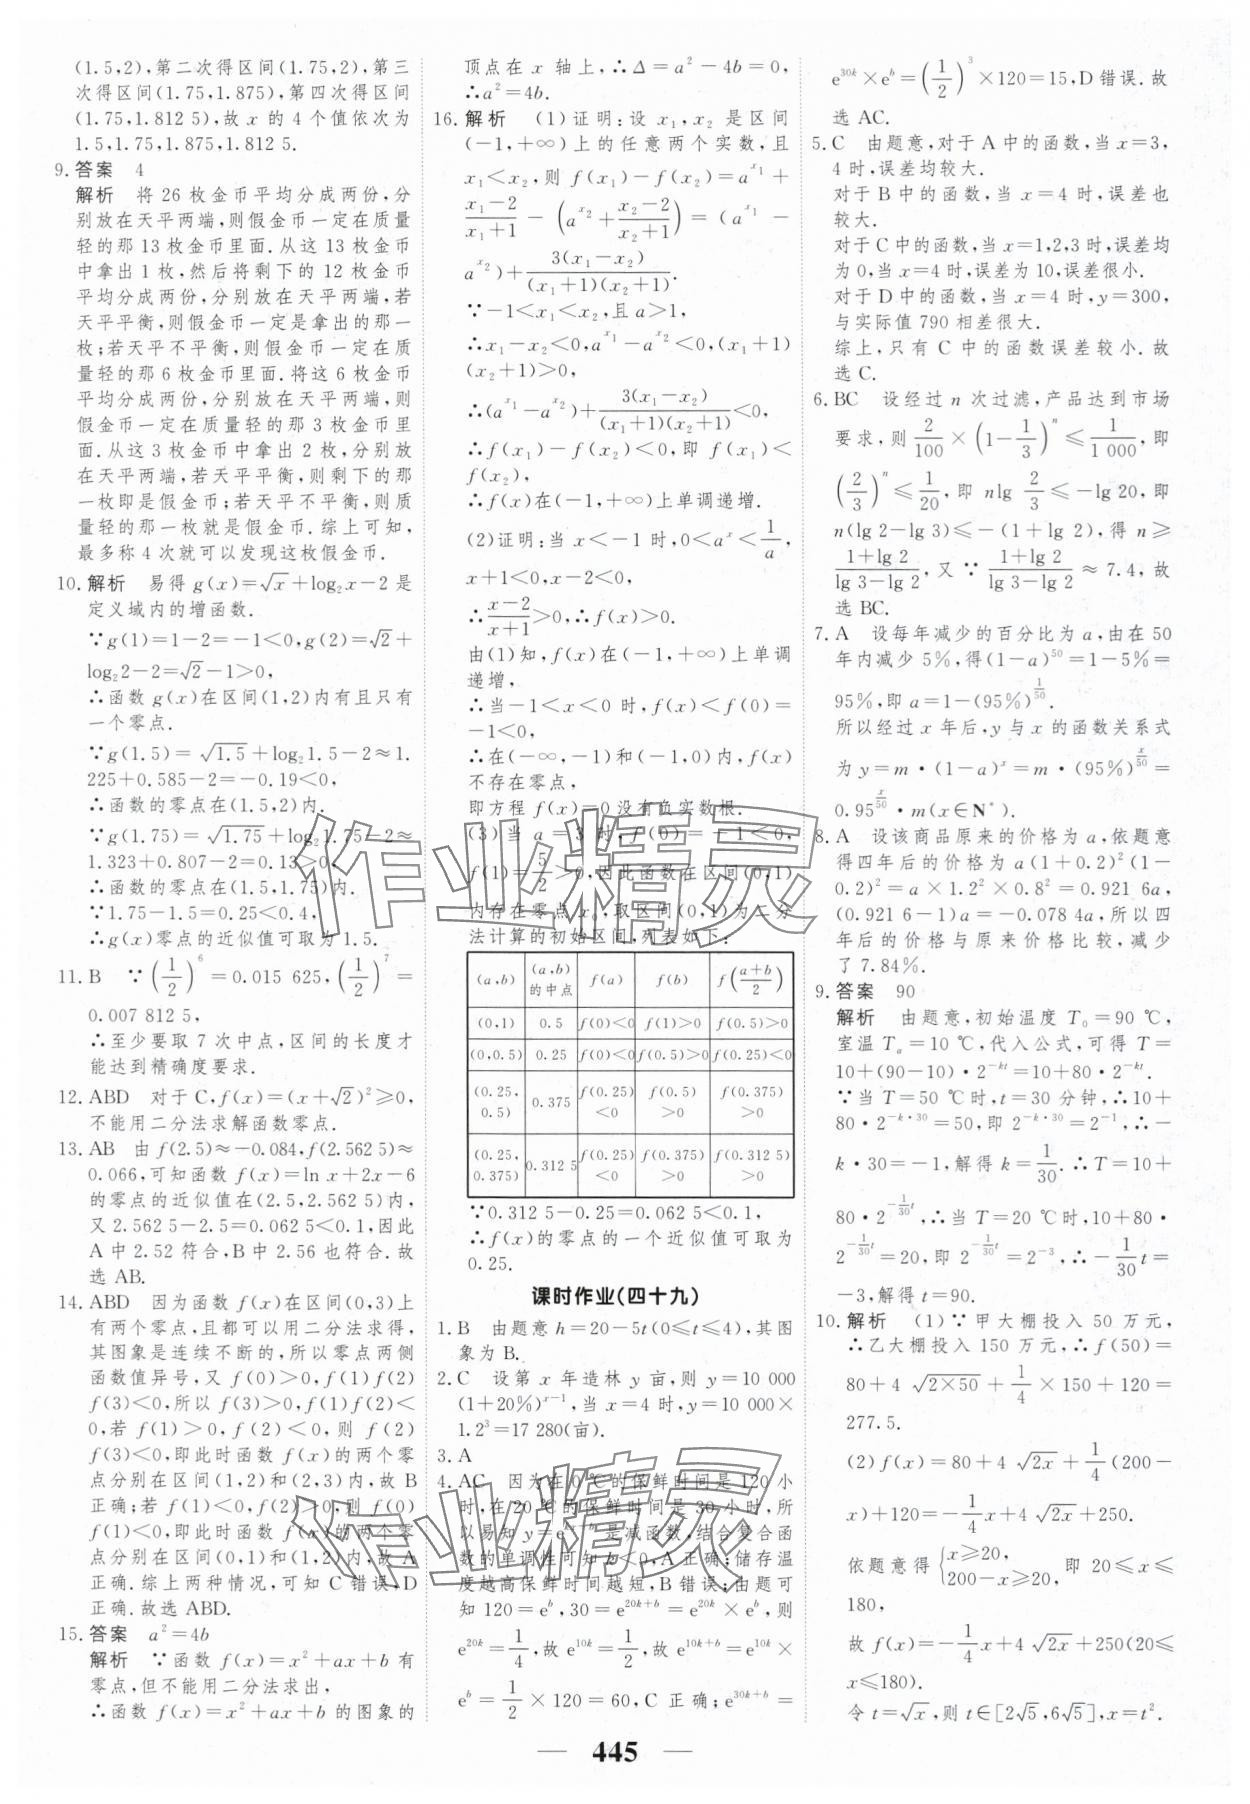 (1.5,2),第二次得区间(1.75,2),第三
次得区间(1.75,1.875),第四次得区间
(1.75,1.812 5),故 x 的 4 个值依次为
1.5,1.75,1.875,1.812 5.
9.答案 4
解析 将 26 枚金币平均分成两份,分
别放在天平两端,则假金币一定在质量
轻的那 13 枚金币里面.从这 13 枚金币
中拿出 1 枚,然后将剩下的 12 枚金币
平均分成两份,分别放在天平两端,若
天平平衡,则假金币一定是拿出的那一
枚;若天平不平衡,则假金币一定在质
量轻的那 6 枚金币里面.将这 6 枚金币
平均分成两份,分别放在天平两端,则
假金币一定在质量轻的那 3 枚金币里
面.从这 3 枚金币中拿出 2 枚,分别放
在天平两端,若天平平衡,则剩下的那
一枚即是假金币;若天平不平衡,则质
量轻的那一枚就是假金币.综上可知,
最多称 4 次就可以发现这枚假金币.
10.解析 易得 g(x)=√x+log₂x-2 是
定义域内的增函数.
∵g(1)=1-2=-1<0,g(2)=√2+
log₂2-2=√2-1>0,
∴函数 g(x)在区间(1,2)内有且只有
一个零点.
∵g(1.5)=√1.5+log₂1.5-2≈1.
225+0.585-2=-0.19<0,
∴函数的零点在(1.5,2)内.
∵g(1.75)=√1.75+log₂1.75-2≈
1.323+0.807-2=0.13>0,
∴函数的零点在(1.5,1.75)内.
∵1.75-1.5=0.25<0.4,
∴g(x)零点的近似值可取为 1.5.
11.B ∵(1/2)⁶=0.015 625,(1/2)⁷=
0.007 812 5,
∴至少要取 7 次中点,区间的长度才
能达到精确度要求.
12.ABD 对于 C,f(x)=(x+√2)²≥0,
不能用二分法求解函数零点.
13.AB 由 f(2.5)≈-0.084,f(2.562 5)≈
0.066,可知函数 f(x)=ln x+2x-6
的零点的近似值在(2.5,2.562 5)内,
又 2.562 5-2.5=0.062 5<0.1,因此
A 中 2.52 符合,B 中 2.56 也符合.故
选 AB.
14.ABD 因为函数 f(x)在区间(0,3)上
有两个零点,且都可以用二分法求得,
其图象是连续不断的,所以零点两侧
函数值异号,又 f(0)>0,f(1)f(2)
f(3)<0,所以 f(3)>0,f(1)f(2)<
0,若 f(1)>0,f(2)<0,则 f(2)
f(3)<0,即此时函数 f(x)的两个零
点分别在区间(1,2)和(2,3)内,故 B
正确;若 f(1)<0,f(2)>0,则 f(0)
f(1)<0,即此时函数 f(x)的两个零
点分别在区间(0,1)和(1,2)内,故 A
正确.综上两种情况,可知 C 错误,D
正确.故选 ABD.
15.答案 a²=4b
解析 ∵函数 f(x)=x²+ax+b 有
零点,但不能用二分法求出,
∴函数 f(x)=x²+ax+b 的图象的
顶点在 x 轴上,∴Δ=a²-4b=0,
∴a²=4b.
16.解析 (1)证明:设 x₁,x₂ 是区间
(-1,+∞)上的任意两个实数,且
x₁<x₂,则 f(x₁)-f(x₂)=a^x₁+
(x₁-2)/(x₁+1)-(a^x₂+(x₂-2)/(x₂+1))=(a^x₁-
a^x₂)+3(x₁-x₂)/(x₁+1)(x₂+1).
∵-1<x₁<x₂,且 a>1,
∴x₁-x₂<0,a^x₁-a^x₂<0,(x₁+1)
(x₂+1)>0,
∴(a^x₁-a^x₂)+3(x₁-x₂)/(x₁+1)(x₂+1)<0,
∴f(x₁)-f(x₂)<0,即 f(x₁)<
f(x₂),
∴f(x)在(-1,+∞)上单调递增.
(2)证明:当 x<-1 时,0<aˣ<1/a,
x+1<0,x-2<0,
∴(x-2)/(x+1)>0,∴f(x)>0.
由(1)知,f(x)在(-1,+∞)上单调
递增,
∴当-1<x<0 时,f(x)<f(0)=
-1<0,
∴在(-∞,-1)和(-1,0)内,f(x)
不存在零点,
即方程 f(x)=0 没有负实数根.
(3)当 a=3 时,f(0)=-1<0,
f(1)=5/2>0,因此函数在区间(0,1)
内存在零点 x₀,取区间(0,1)为二分
法计算的初始区间,列表如下:
(a,b) (a,b)的中点 f(a) f(b) f((a+b)/2)
(0,1) 0.5 f(0)<0 f(1)>0 f(0.5)>0
(0,0.5) 0.25 f(0)<0 f(0.5)>0 f(0.25)<0
(0.25,0.5) 0.375 f(0.25)<0 f(0.5)>0 f(0.375)>0
(0.25,0.375) 0.312 5 f(0.25)<0 f(0.375)>0 f(0.312 5)>0
∵0.312 5-0.25=0.062 5<0.1,
∴f(x)的零点的一个近似值可取为
0.25.
课时作业(四十九)
1.B 由题意 h=20-5t(0≤t≤4),其图
象为 B.
2.C 设第 x 年造林 y 亩,则 y=10 000
(1+20%)^(x-1),当 x=4 时,y=10 000×
1.2³=17 280(亩).
3.A
4.AC 因为在 0 ℃的保鲜时间是 120 小
时,在 20 ℃的保鲜时间是 30 小时,所
以易知 y=e^(kx+b)是减函数,结合复合函
数的单调性可知 k<0,A 正确;储存温
度越高保鲜时间越短,B 错误;由题可
知 120=e^b,30=e^(20k+b)=e^(20k)×e^b,则
e^(20k)=1/4,故 e^(10k)=1/2,故 e^(10k+b)=e^(10k)×
e^b=1/2×120=60,C 正确;e^(30k+b)=
e^(30k)×e^b=(1/2)³×120=15,D 错误.故
选 AC.
5.C 由题意,对于 A 中的函数,当 x=3,
4 时,误差均较大.
对于 B 中的函数,当 x=4 时,误差也
较大.
对于 C 中的函数,当 x=1,2,3 时,误差均
为 0,当 x=4 时,误差为 10,误差很小.
对于 D 中的函数,当 x=4 时,y=300,
与实际值 790 相差很大.
综上,只有 C 中的函数误差较小.故
选 C.
6.BC 设经过 n 次过滤,产品达到市场
要求,则 2/100×(1-1/3)ⁿ≤1/1 000,即
(2/3)ⁿ≤1/20,即 nlg 2/3≤-lg 20,即
n(lg 2-lg 3)≤-(1+lg 2),得 n≥
(1+lg 2)/(lg 3-lg 2),又∵(1+lg 2)/(lg 3-lg 2)≈7.4,故
选 BC.
7.A 设每年减少的百分比为 a,由在 50
年内减少 5%,得(1-a)⁵⁰=1-5%=
95%,即 a=1-(95%)^(1/50).
所以经过 x 年后,y 与 x 的函数关系式
为 y=m·(1-a)ˣ=m·(95%)^(x/50)=
0.95^(x/50)·m(x∈N*).
8.A 设该商品原来的价格为 a,依题意
得四年后的价格为 a(1+0.2)²(1-
0.2)²=a×1.2²×0.8²=0.921 6a,
(0.921 6-1)a=-0.078 4a,所以四
年后的价格与原来价格比较,减少
了 7.84%.
9.答案 90
解析 由题意,初始温度 T₀=90 ℃,
室温 Tₐ=10 ℃,代入公式,可得 T=
10+(90-10)·2^(-kt)=10+80·2^(-kt).
∵当 T=50 ℃时,t=30 分钟,∴10+
80·2^(-k·30)=50,即 2^(-k·30)=2⁻¹,∴-
k·30=-1,解得 k=1/30.∴T=10+
80·2^(-1/30 t),∴当 T=20 ℃时,10+80·
2^(-1/30 t)=20,即 2^(-1/30 t)=2⁻³,∴-1/30 t=
-3,解得 t=90.
10.解析 (1)∵甲大棚投入 50 万元,
∴乙大棚投入 150 万元,∴f(50)=
80+4√(2×50)+1/4×150+120=
277.5.
(2)f(x)=80+4√(2x)+1/4(200-
x)+120=-1/4x+4√(2x)+250.
依题意得{x≥20,200-x≥20,即 20≤x≤
180,
故 f(x)=-1/4x+4√(2x)+250(20≤
x≤180).
令 t=√x,则 t∈[2√5,6√5],x=t².
作业精灵
作业精灵
— 445 —